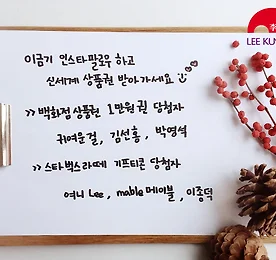 李
LEE KU
이금기 인스타팔로우 하고
신세계 상품권 받아가세요
>> 백화점상품권 1만원권 당첨자
귀여운걸, 김선홍, 박영석
>> 스타벅스라떼 기프티콘 당첨자
여니 Lee, mable메이블, 이종덕